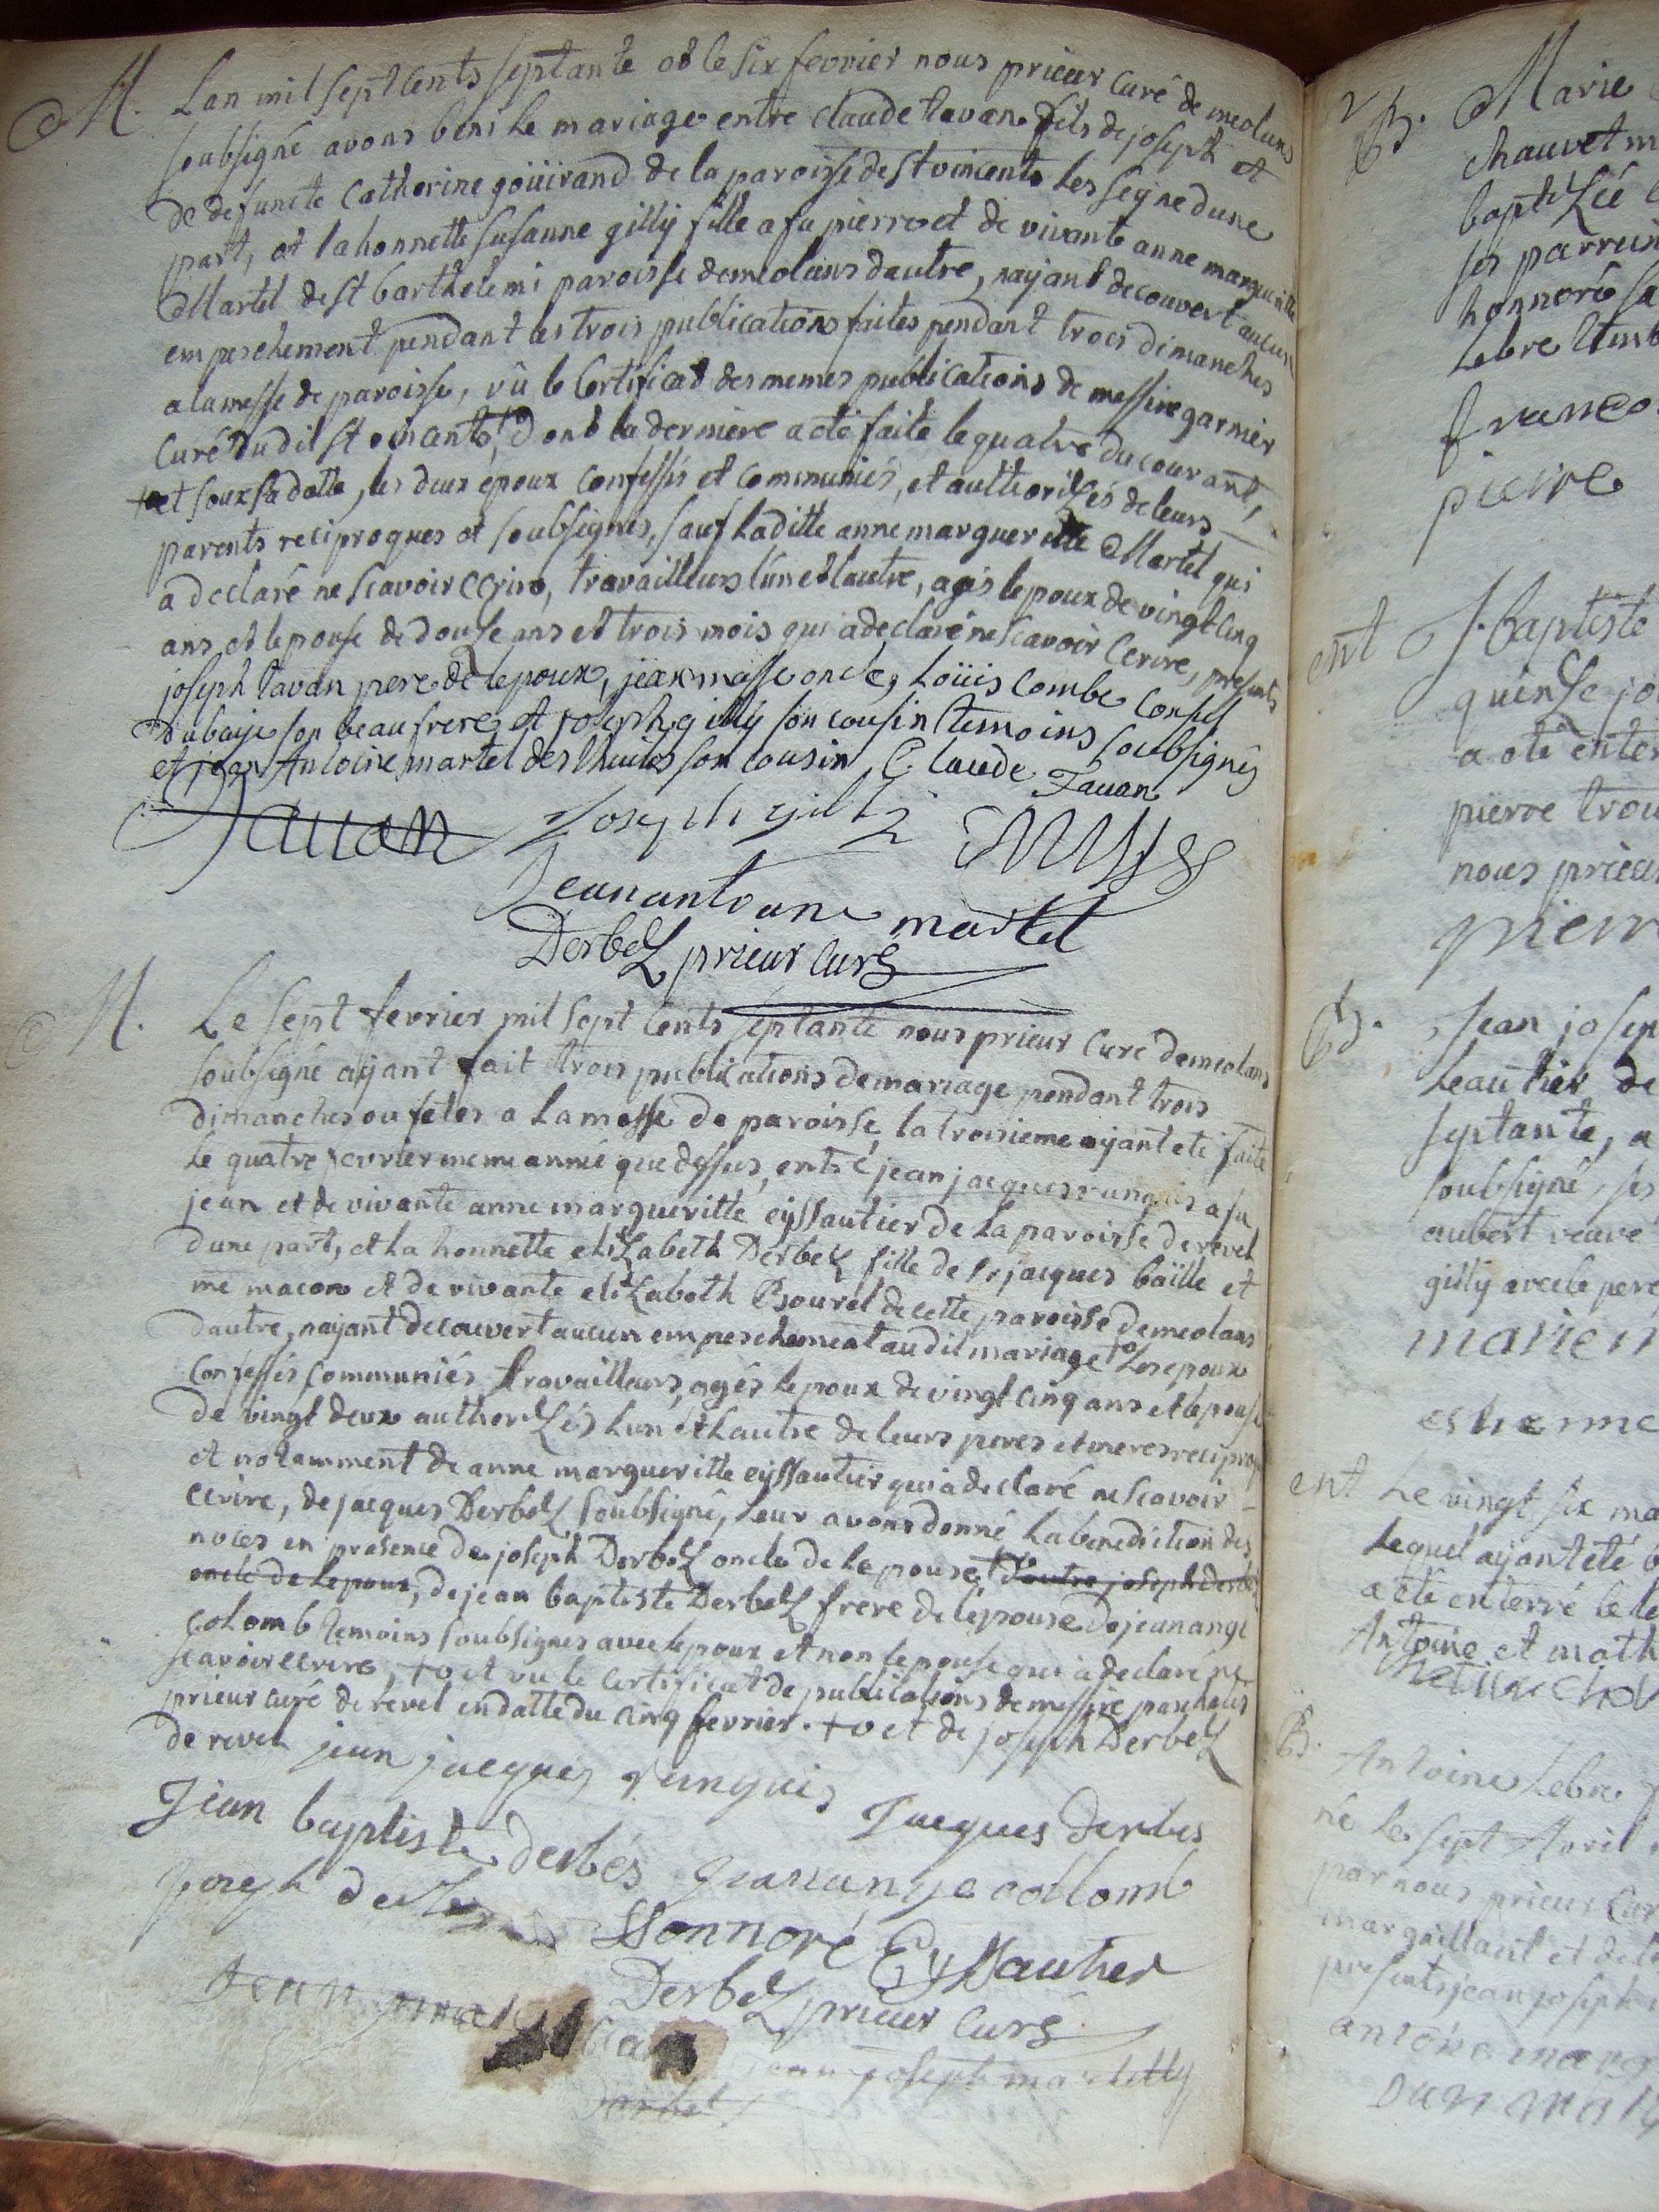 M. Lan mil sept cents septante et le six fevrier nous prieur curé de meolans
soubsigné avons beni le mariage entre claude tavan fils de joseph et
de defuncte catherine goüirand de la paroisse de st vincents les seyne dune
part, et la honnette susanne gilly fille a fu pierre et de vivante anne margueritte
Martel de st barthelemi paroisse de meolans dautre, nayant decouvert aucun
empeschement pendant les trois publications faites pendant trois dimanches
a la messe de paroisse, vû le certificat des memes publications de messire garnier
curé dudit st vincents, dont la derniere a eté faite le quatre du courant,
et soux sa datte, les deux epoux confessés et communiés, et authorisés de leurs
parents reciproques et soubsignés, sauf laditte anne margueritte Martel qui
a declaré ne scavoir ecrire, travailleurs lun et lautre, agés lepoux de vingt cinq
ans et lepouse de douse ans et trois mois qui a declaré ne scavoir ecrire, presents
joseph tavan pere de lepoux, jean masse oncle, Loüis combe consul
dubaye son beau frere et joseph gilly son cousin temoins soubsignés
et jean Antoine martel des thuiles son cousin Claude Tavan
Tavan Joseph gilly Masse
Jean antoine martel
Derbez prieur curé
M. Le sept fevrier mil sept cents septante nous prieur curé de meolans
soubsigné ayant fait trois publications de mariage pendant trois
dimanches ou fetes a la messe de paroisse, la troisieme ayant eté faite
le quatre fevrier meme année que dessus, entre jean jacques runguis a fu
jean et de vivante anne margueritte eyssautier de la paroisse de revel
dune part, et la honnette elizabeth Derbez fille de sr jacques baille et
me macon et de vivante elizabeth Bourel de cette paroisse de meolans
dautre, nayant decouvert aucun empeschement audit mariage Les epoux
confessés communiés travailleurs, agés lepoux de vingt cinq ans et lepouse
de vingt deux authorizés lun et lautre de leurs peres et meres reciproq
et notamment de anne margueritte eyssautier qui a declaré ne scavoir
ecrire, de jacques Derbez soubsigné, leur avons donné la benediction des
noces en presence de joseph Derbez oncle de lepouse, dautre joseph derbez
oncle de lepoux, de jean baptiste Derbez frere de lepouse de jean ange
colomb temoins soubsignés avec lepoux et non lepouse qui a declaré ne
scavoir ecrire, +o et vu le certificat de publications de messire paschalis
prieur curé de revel en datte du cinq fevrier. +o et de joseph Derbez
de revel jean jacques runguis Jacques derbes
Jean baptiste derbés Jean ange collomb
joseph Honnoré Eyssautier
Derbez prieur curé
Jean
jean joseph
2
B. Marie
chauvet m
baptisée
ses parrein
honnoré
Lebre
pierre
ent J. baptiste
quinse jo
a eté enter
pierre trou
nous prieur
pierr
B. Jean josep
Leautier de
septante, a
soubsigné, ses
aubert veuve
gilly avec le pere
ent Le vingt six ma
Lequel ayant eté
a eté enterré le le
Antoine et math
B. Antoine Lebre
né le sept Avril
par nous prieur cur
margaillant et de
presents jean joseph
antoine